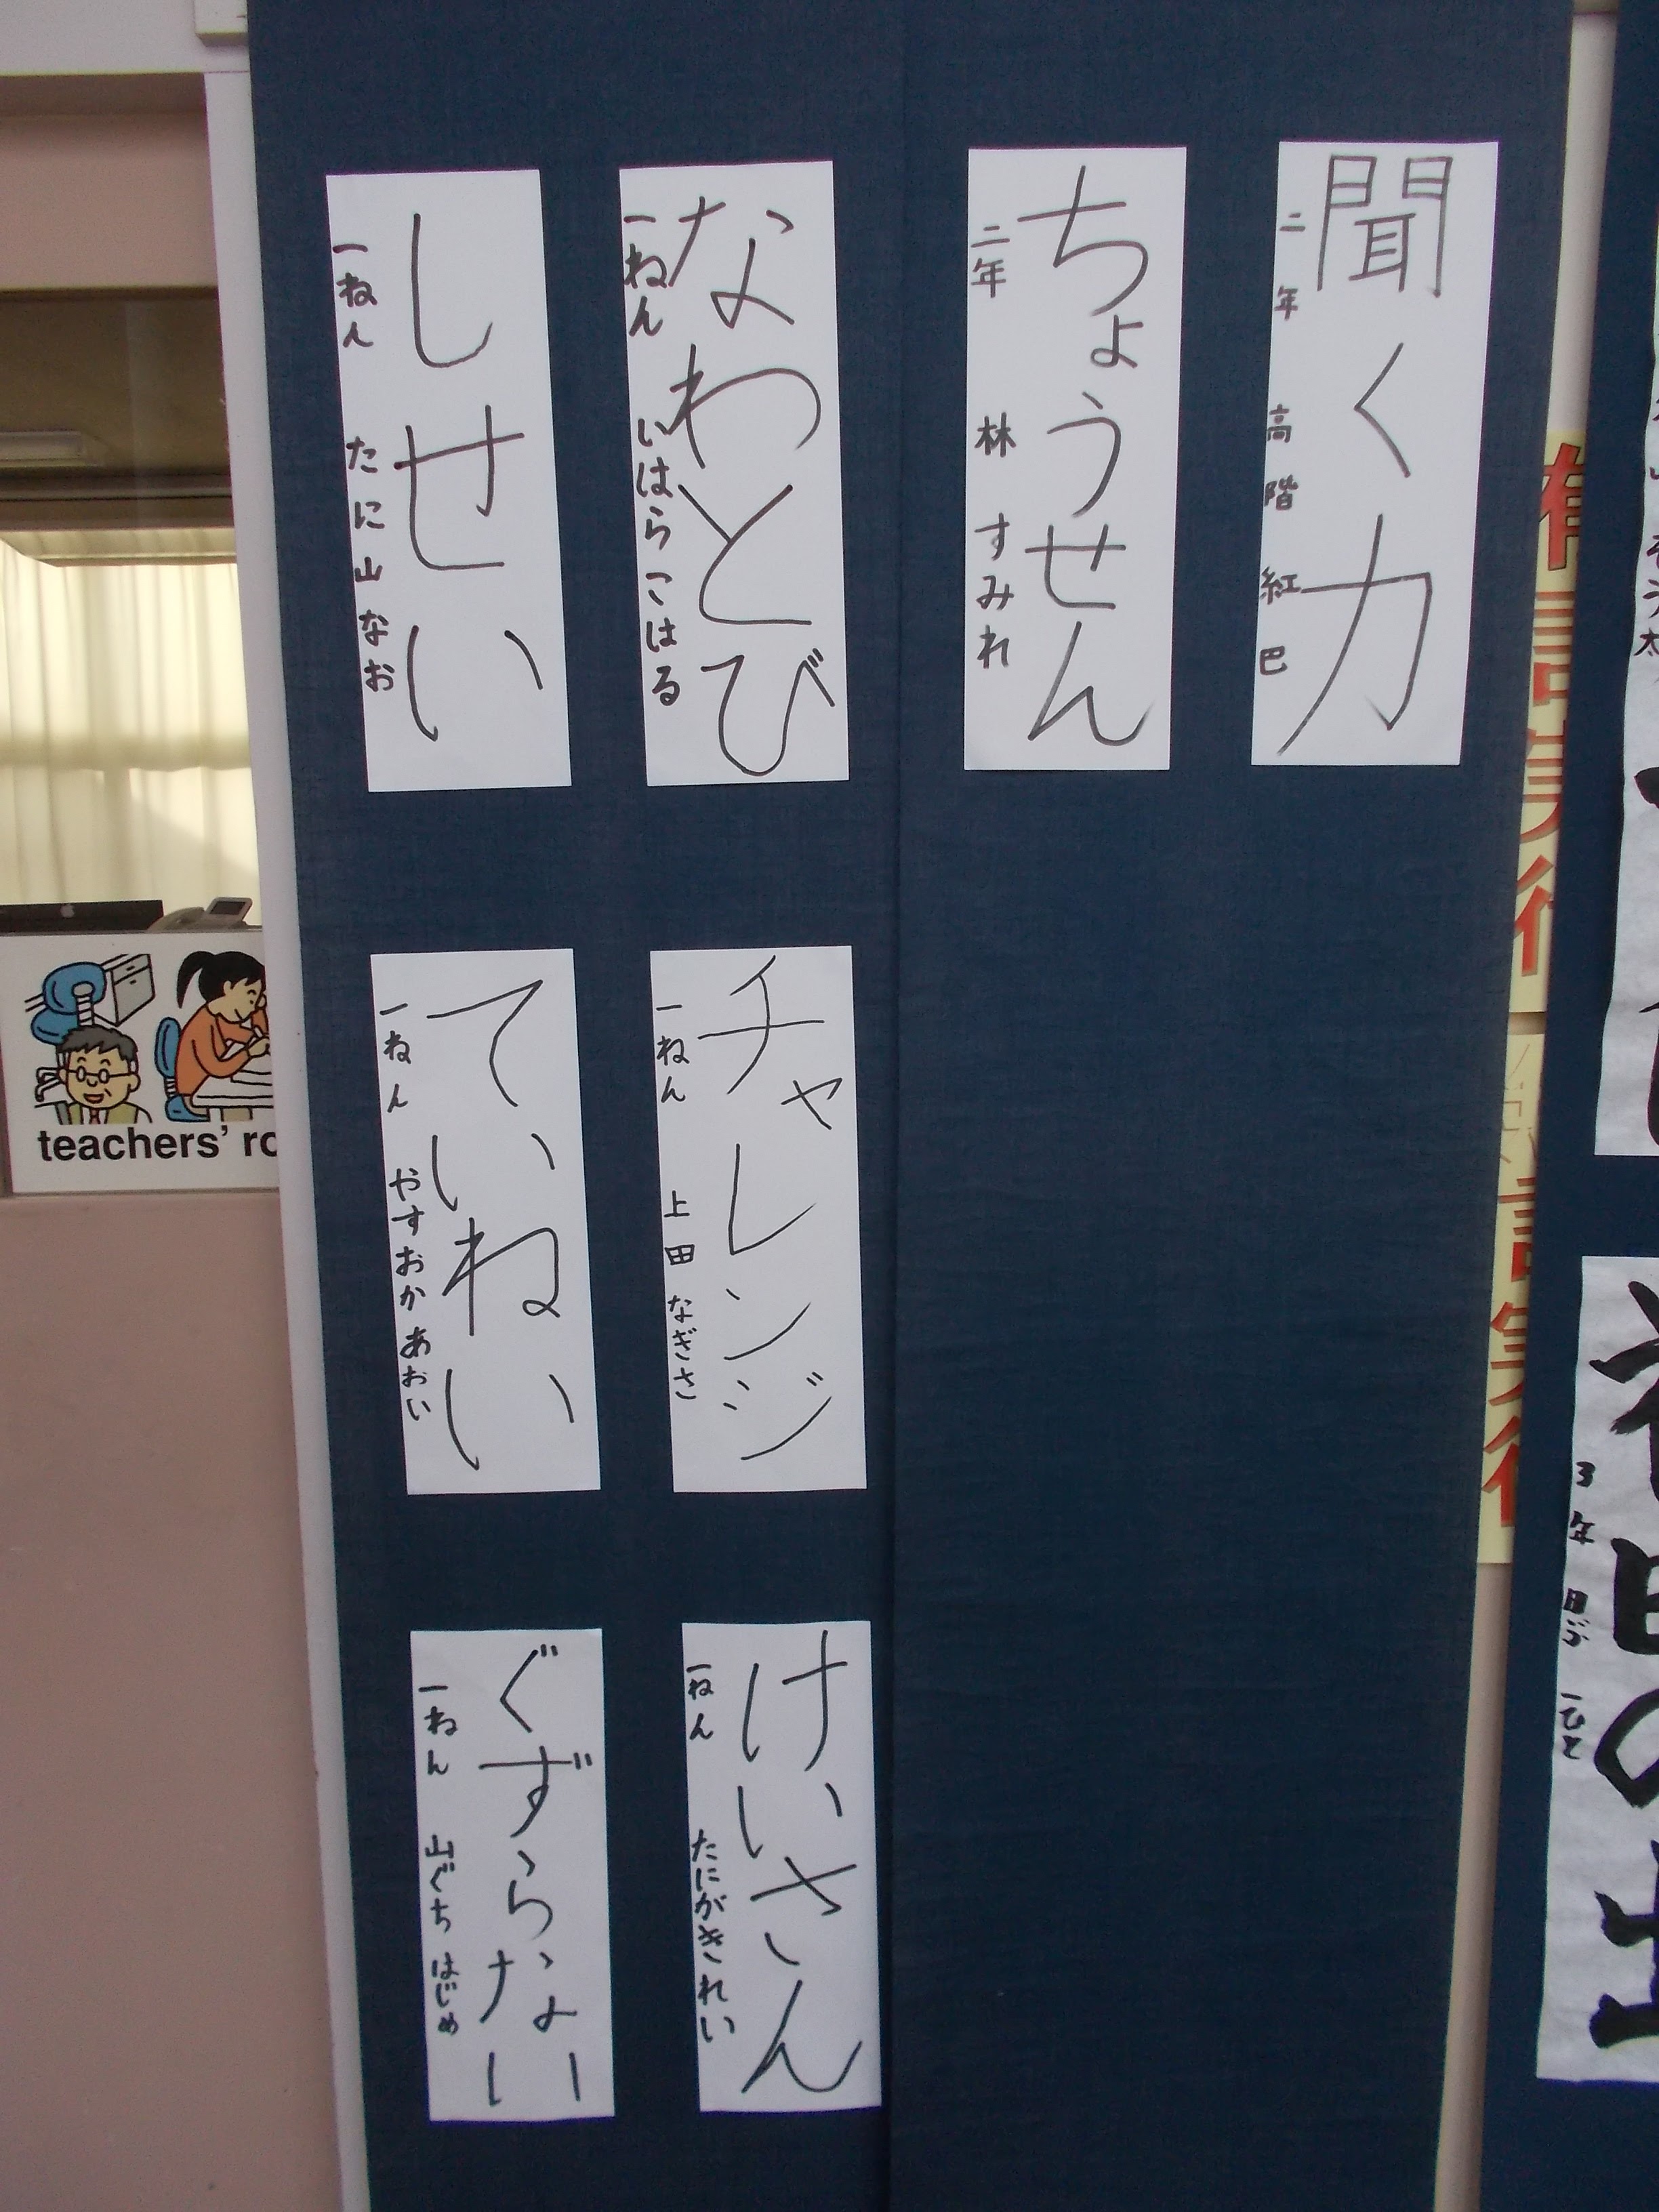 聞く力
二年 高階 紅巴
ちょうせん
二年 林 すみれ
なわとび
一ねん いはら こはる
しせい
一ねん たに山 なお
チャレンジ
一ねん 上田 なぎさ
ていねい
一ねん やすおか あおい
けいさん
一ねん たにがきれい
ぐずらない
一ねん 山ぐち はじめ
teachers'
日の出